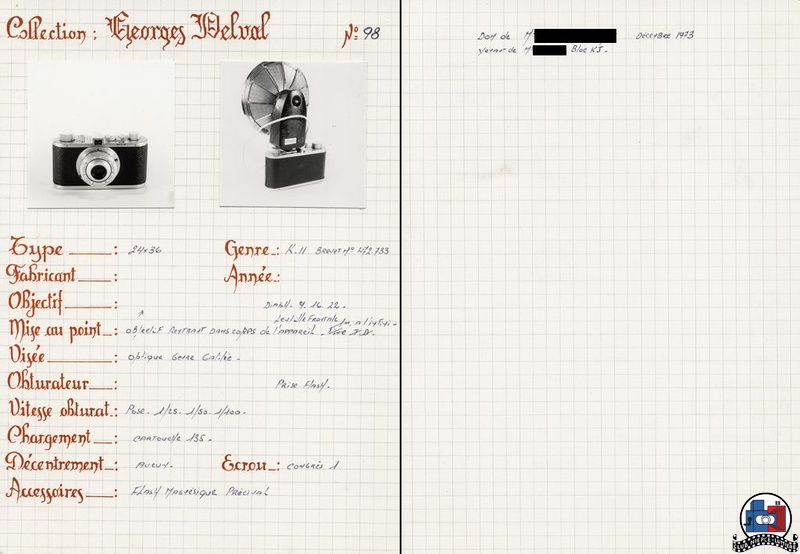 Collection : Georges Delval N° 98
Type : 24x36
Genre : K.II Brevet N° 472.733
Fabricant :
Année :
Objectif :
Diaph. 9. 16. 22.
Mise au point : objectif rentrant dans corps de l'appareil -
Lentille Frontale
Visée : oblique Genre Galilée -
Obturateur : Prise Flash -
Vitesse obturat. : Pose - 1/25. 1/50 1/100 -
Chargement : cartouche 135 -
Décentrement : Aucun -
Ecrou : Congrès 1
Accessoires : Flash Magnésique Précival
Don de M Décembre 1973
de M Bloc KI -